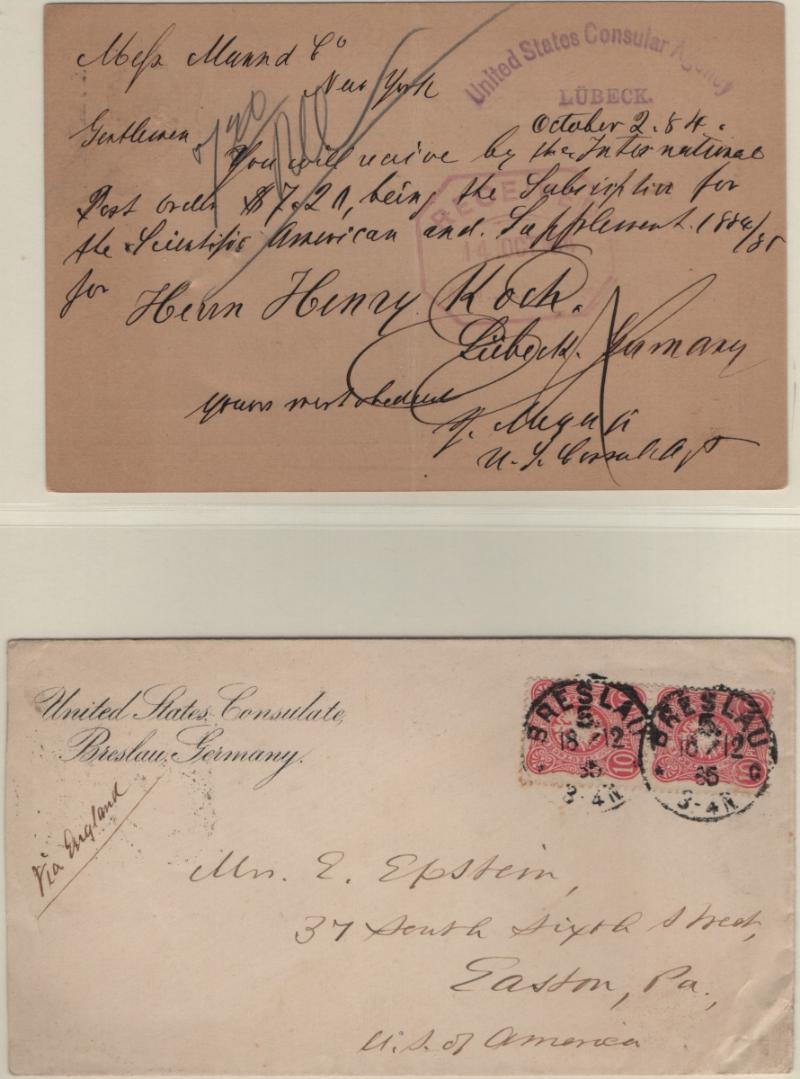 Mess Munn & Co
New York
United States Consular Agency
LÜBECK.
October 2. 84.
Gentlemen
You will receive by the International
Post order $7.20, being the Subscription for
the Scientific American and Supplement 1884/85
for
Herrn Henry Koch.
Lübeck. Germany
yours most obedient
U. S. Consul Agt
RECEIVED
14 OCT
United States Consulate,
Breslau, Germany.
via England
BRESLAU
5.
18/12
85
3-4N
BRESLAU
5.
18/12
85
3-4N
10
Mrs. E. Epstein,
37 South Sixth Street,
Easton, Pa.,
U.S. of America